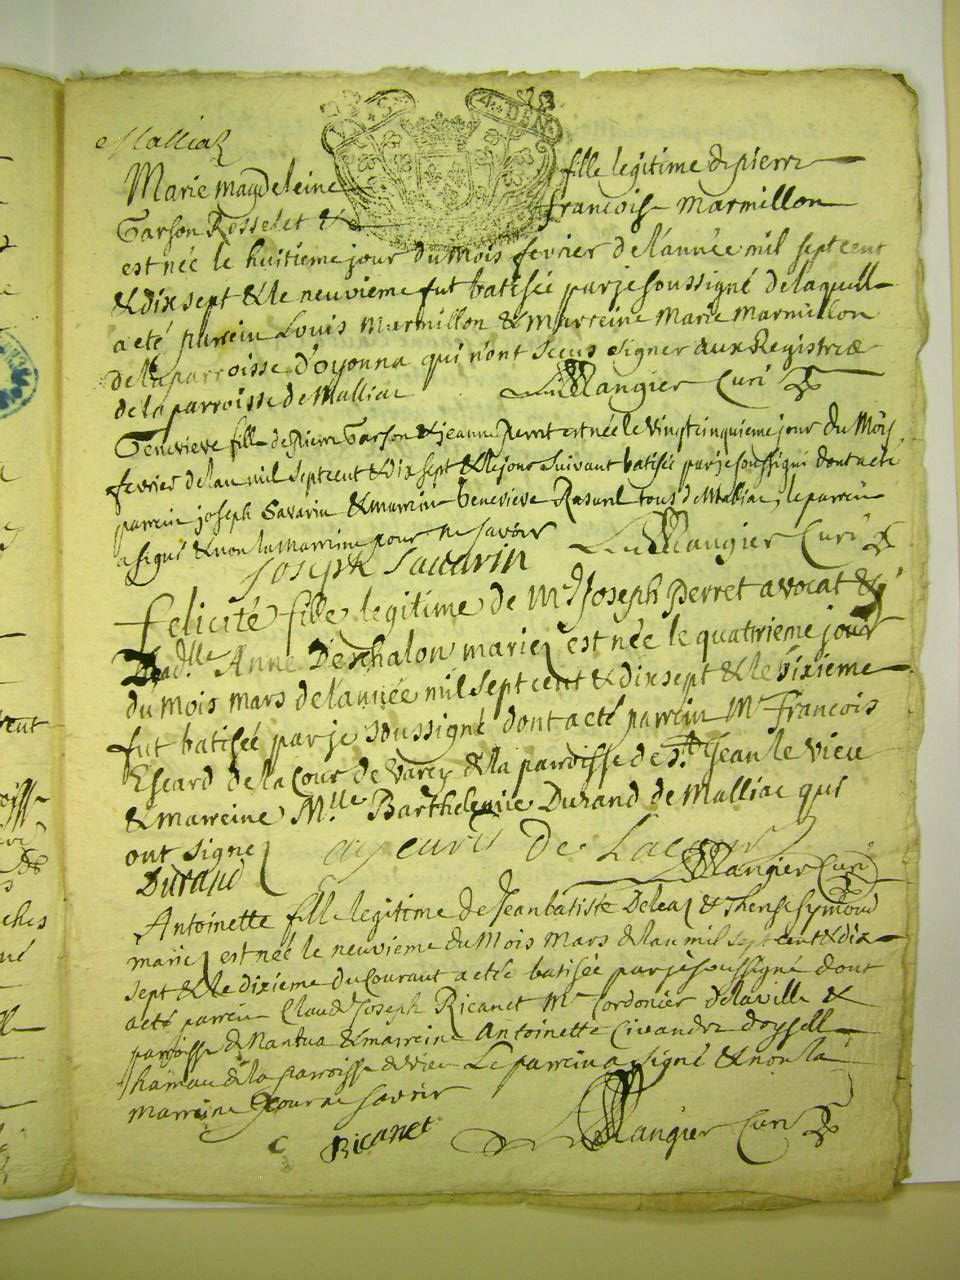 Malliaz
4 DEN
Marie magdeleine fille legitime de pierre
Garson Rosselet & francoise marmillon
est née le huitieme jour du mois fevrier de l'année mil sept cent
& dix sept & le neuvieme fut batisée par je soussigné de laquelle
a eté parrein Louis marmillon & marreine Marie marmillon
de la parroisse d'oyonna qui n'ont sceus signer aux Registræ
de la parroisse de Malliac Mangier Curé
Genevieve fille de Pierre Garson & jeanne Perret est née le vingt cinquieme jour du Mois
fevrier de l'an mil sept cent & dix sept & le jour suivant batisée par je soussigné dont a eté
parrein joseph Savarin & marreine Genevieve tous de Malliac, le parrein
a signé & non la marreine pour ne savoir Mangier Curé
Joseph Savarin
Felicité fille legitime de Mr Joseph Perret avocat &
Anne Deschalon mariez est née le quatrieme jour
du mois mars de l'année mil sept cent & dix sept & le sixieme
fut batisée par je soussigné dont a eté parrein Mr Francois
Escard de la Cour de Varey & la paroisse de St Jean le vieu
& marreine Mlle Barthelemie Durand de Malliac qui
ont signe De Lacour
Durand Mangier Curé
Antoinette fille legitime de Jean batiste Deleaz & Therese Symond
mariez est née le neuvieme du Mois Mars de l'an mil sept cent & dix
sept & le dixieme du Courant a eté batisée par je soussigné dont
a eté parrein Claude Joseph Ricanet Mr Cordonier de la ville &
parroisse de Nantua & marreine Antoinette d'oysell
hameau de la parroisse de vieu Le parrein a signé & non la
marreine pour ne savoir
Ricanet Mangier Curé